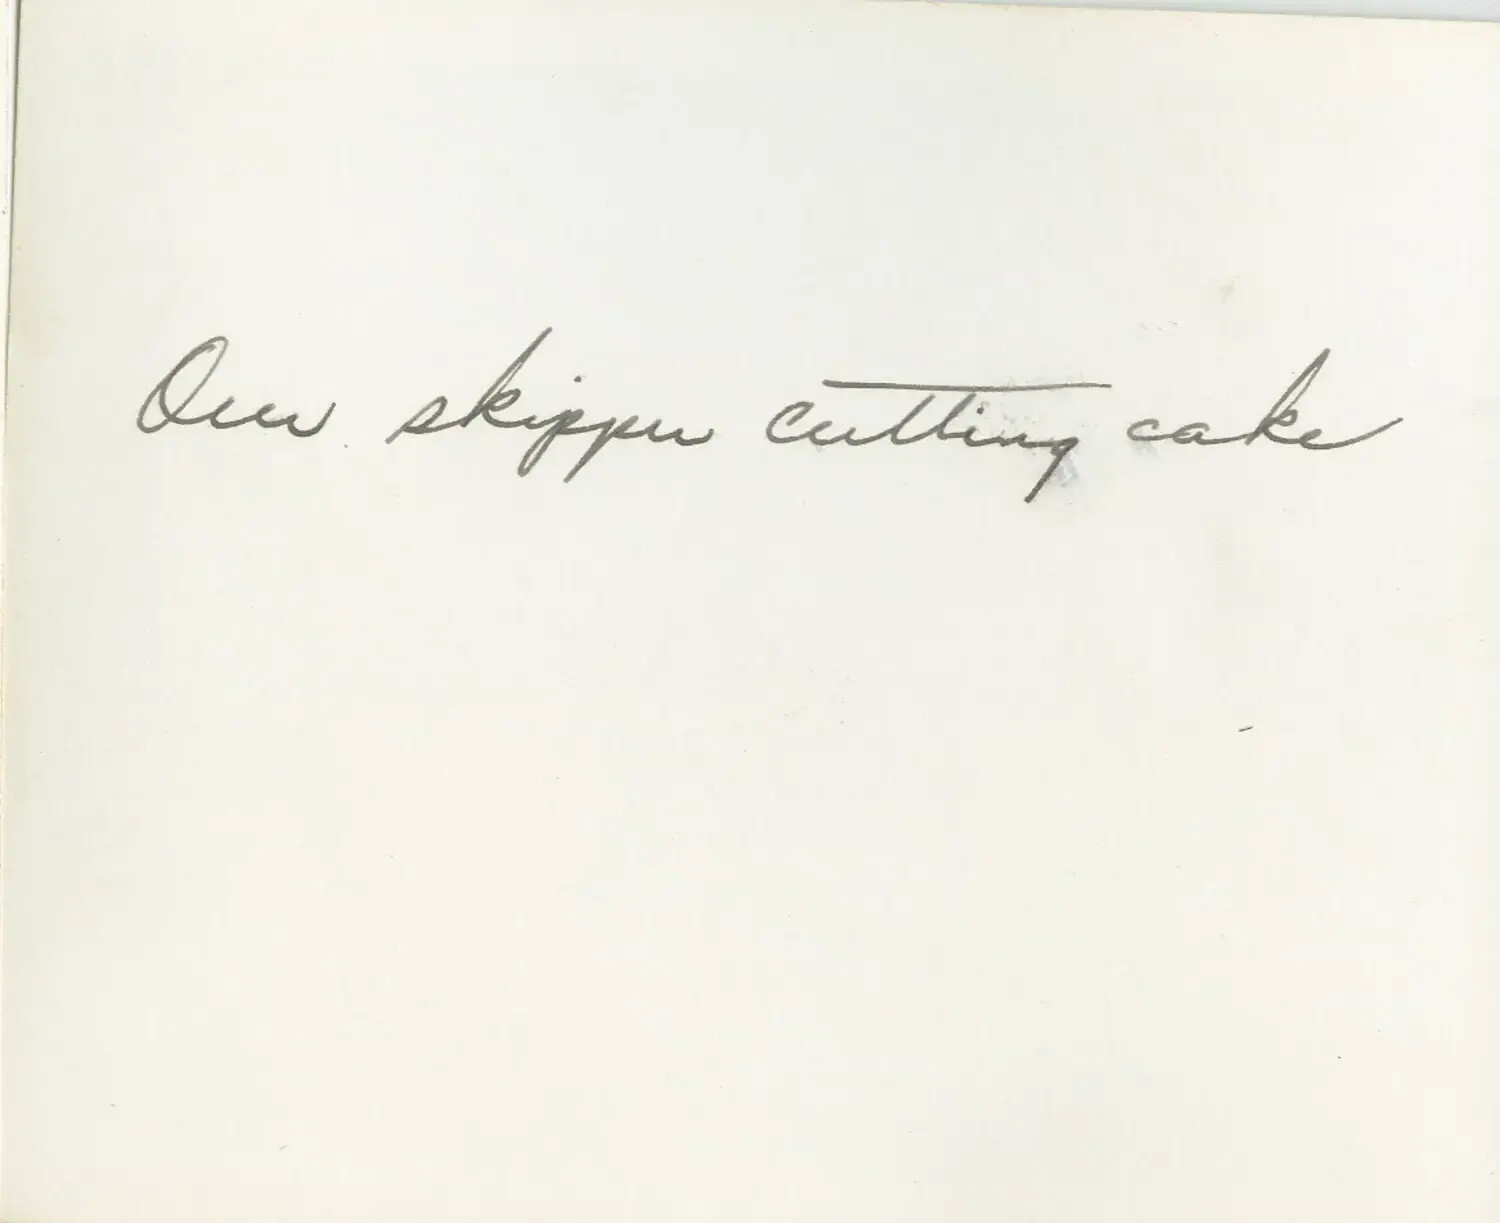 Our skipper cutting cake